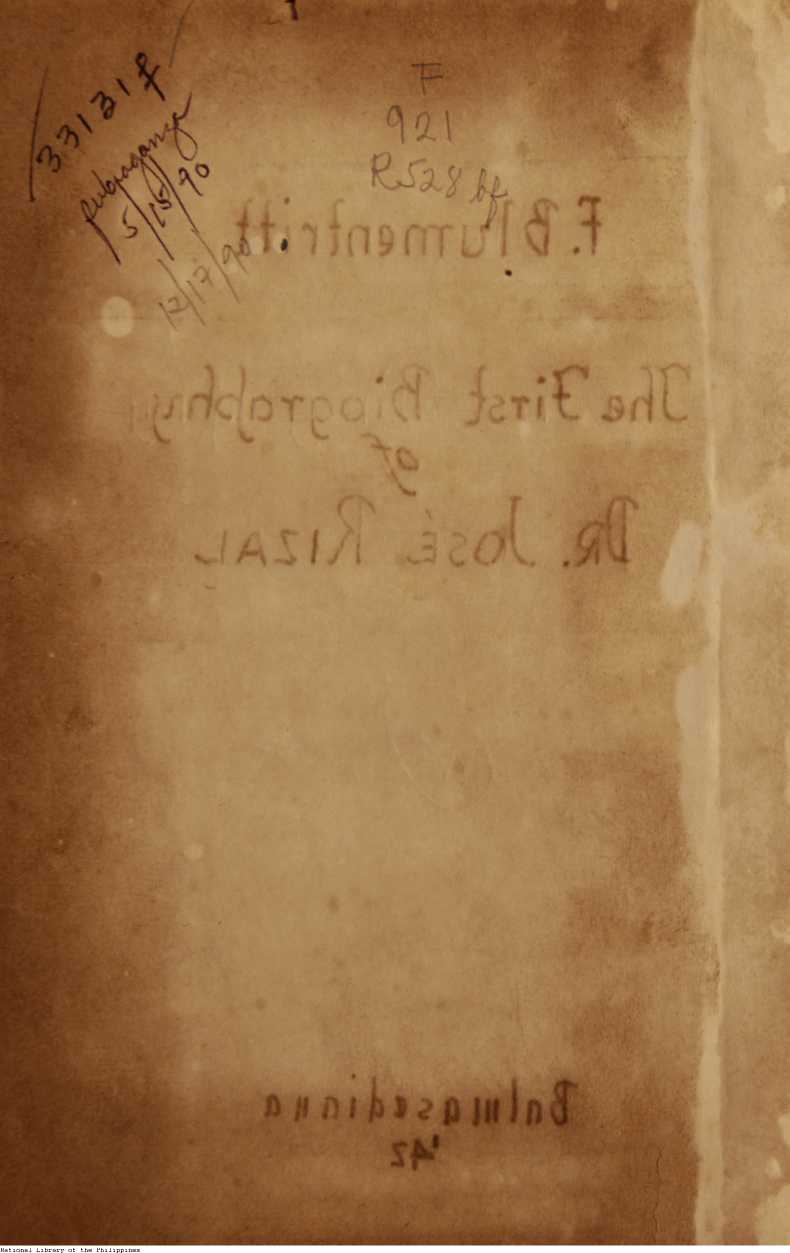 33131f
5/15/90
12/17/90
F
921
R528bf
F. Blumentritt
The First Biography
of
DR. JOSÉ RIZAL
Balmasediana
'42
National Library of the Philippines